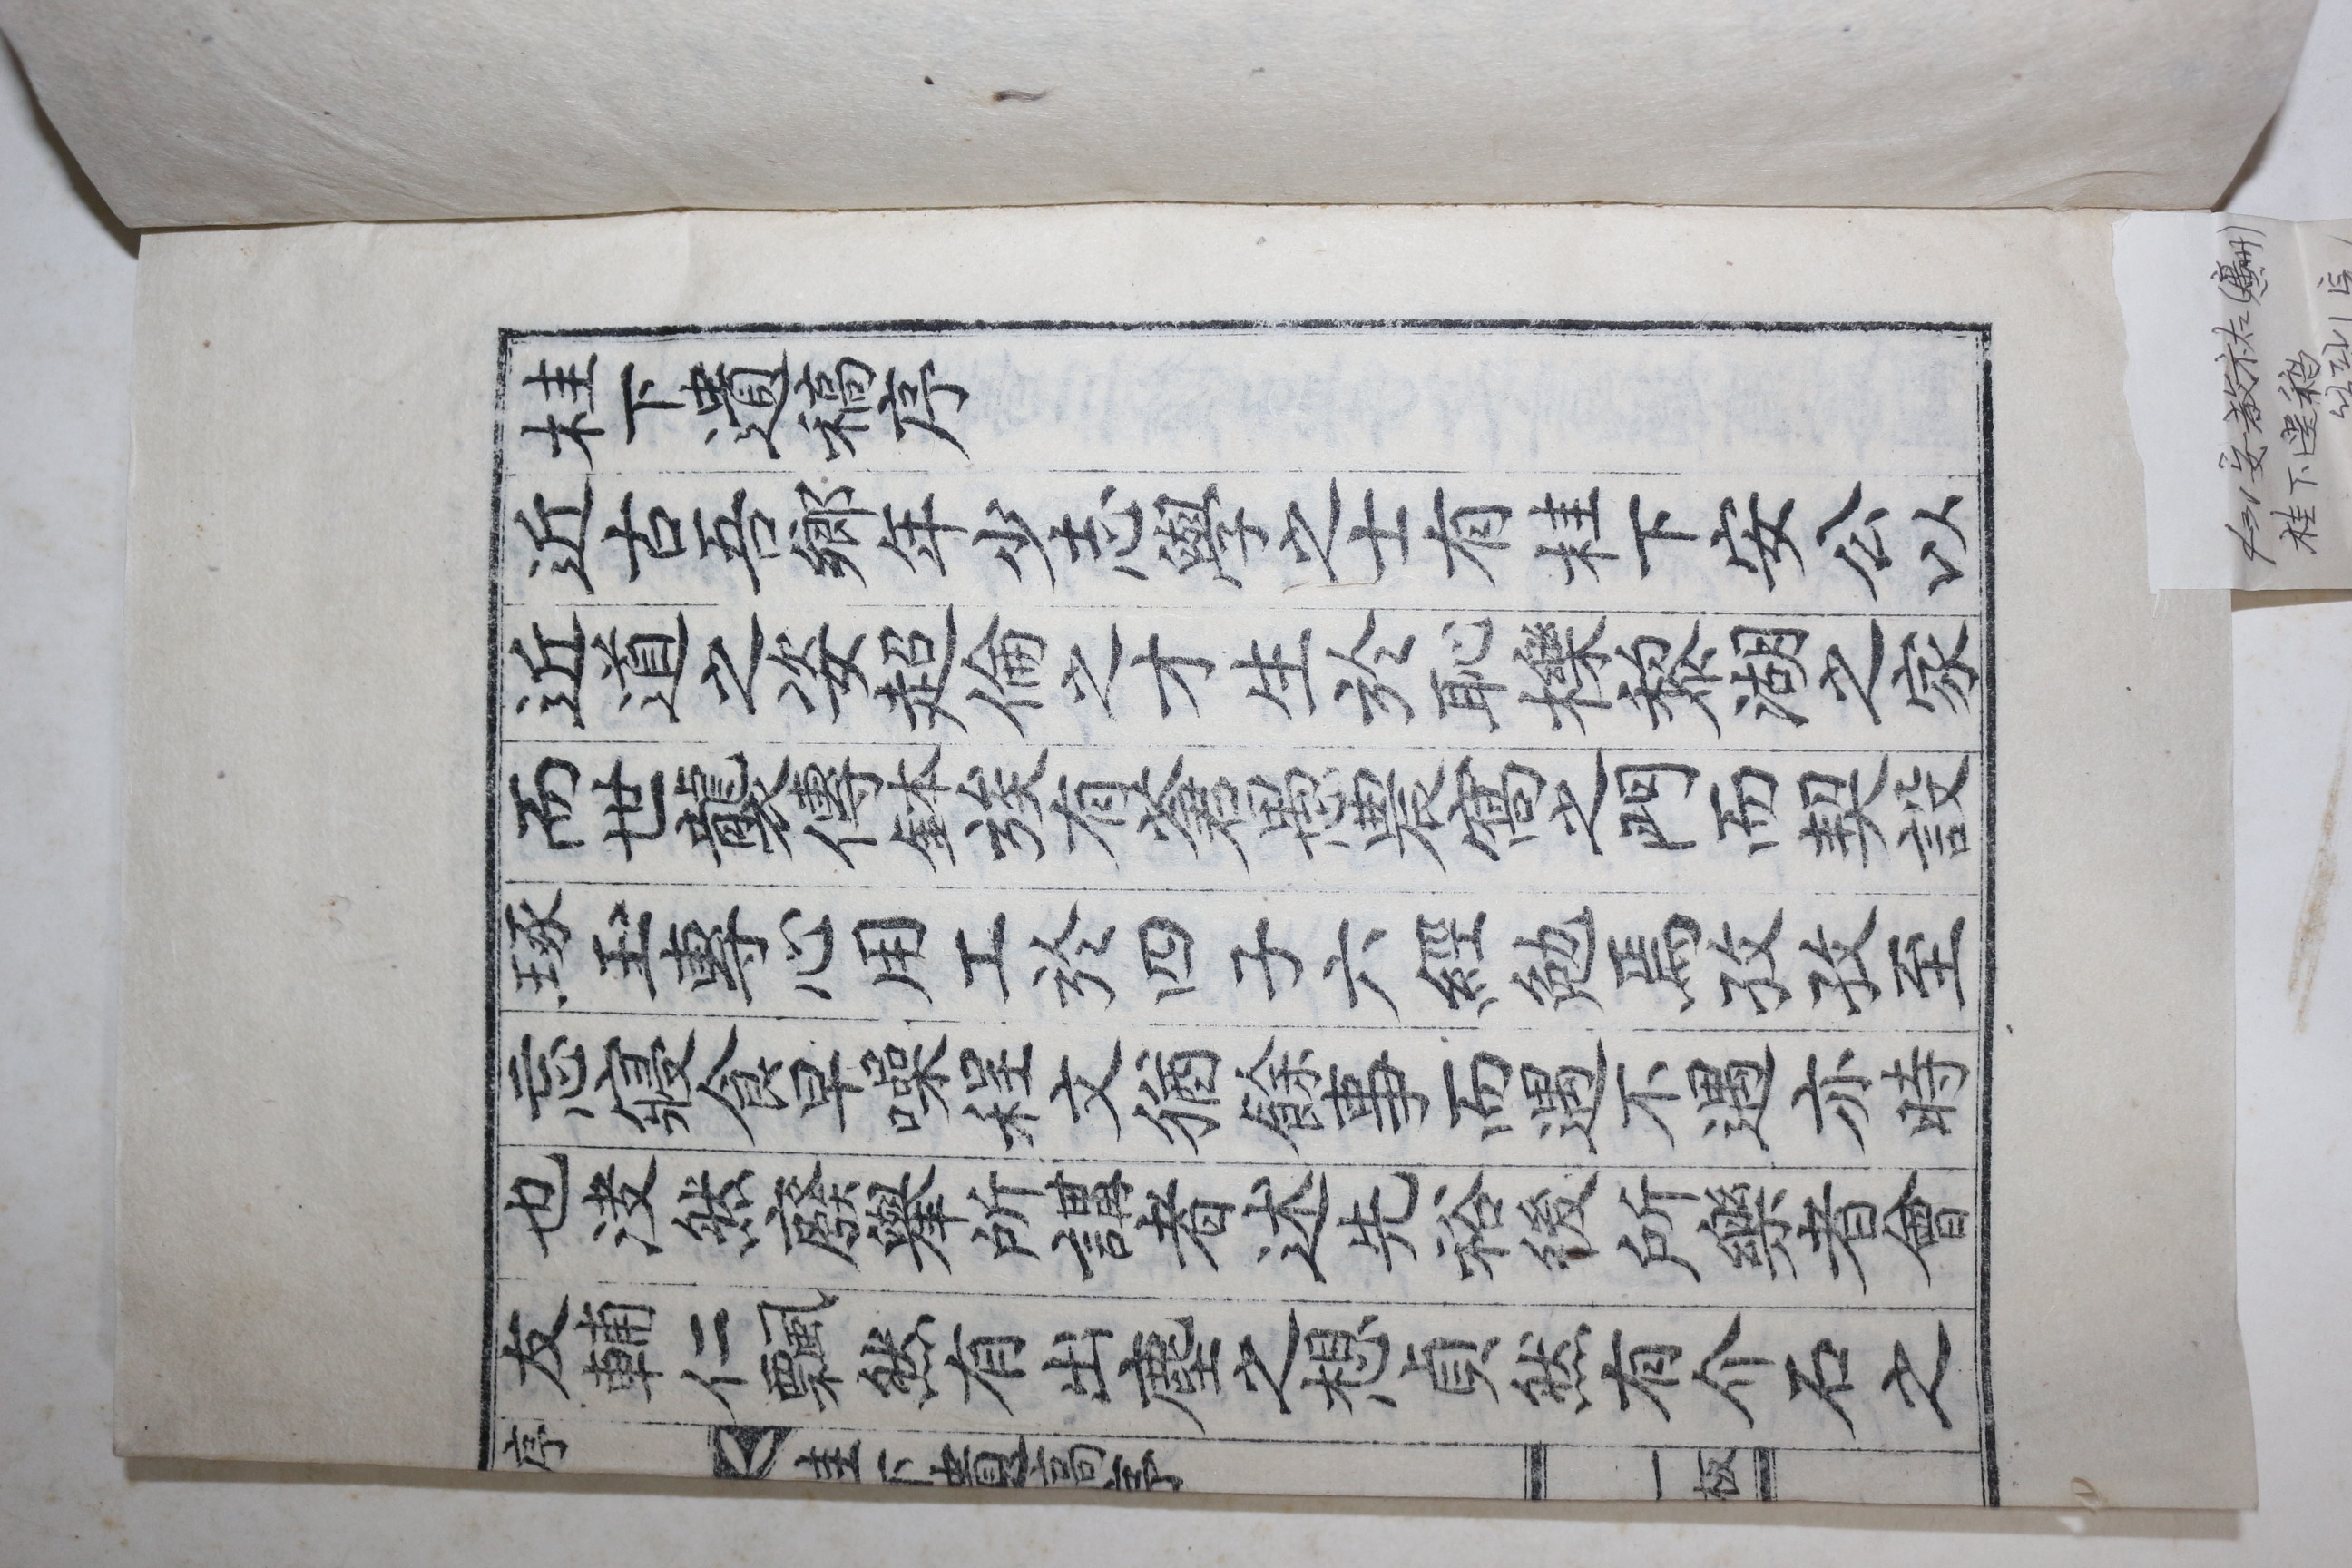 桂下遺稿序
近古吾鄉年少志學之士有桂下安公以
近道之姿超倫之才生於恥櫟黎湖之家
而世襲傳鉢族有蒼愚農窩之門而契設
琢玉專心用工於四子六經勉焉孜孜至
忘寢食早噪程文猶餘事而遇不遇亦時
也沒然廢擧所講者述先裕後所樂者會
友輔仁飄然有出塵之想貞然有介石之
序 桂下遺稿序 一板
安敎祐
桂下遺稿